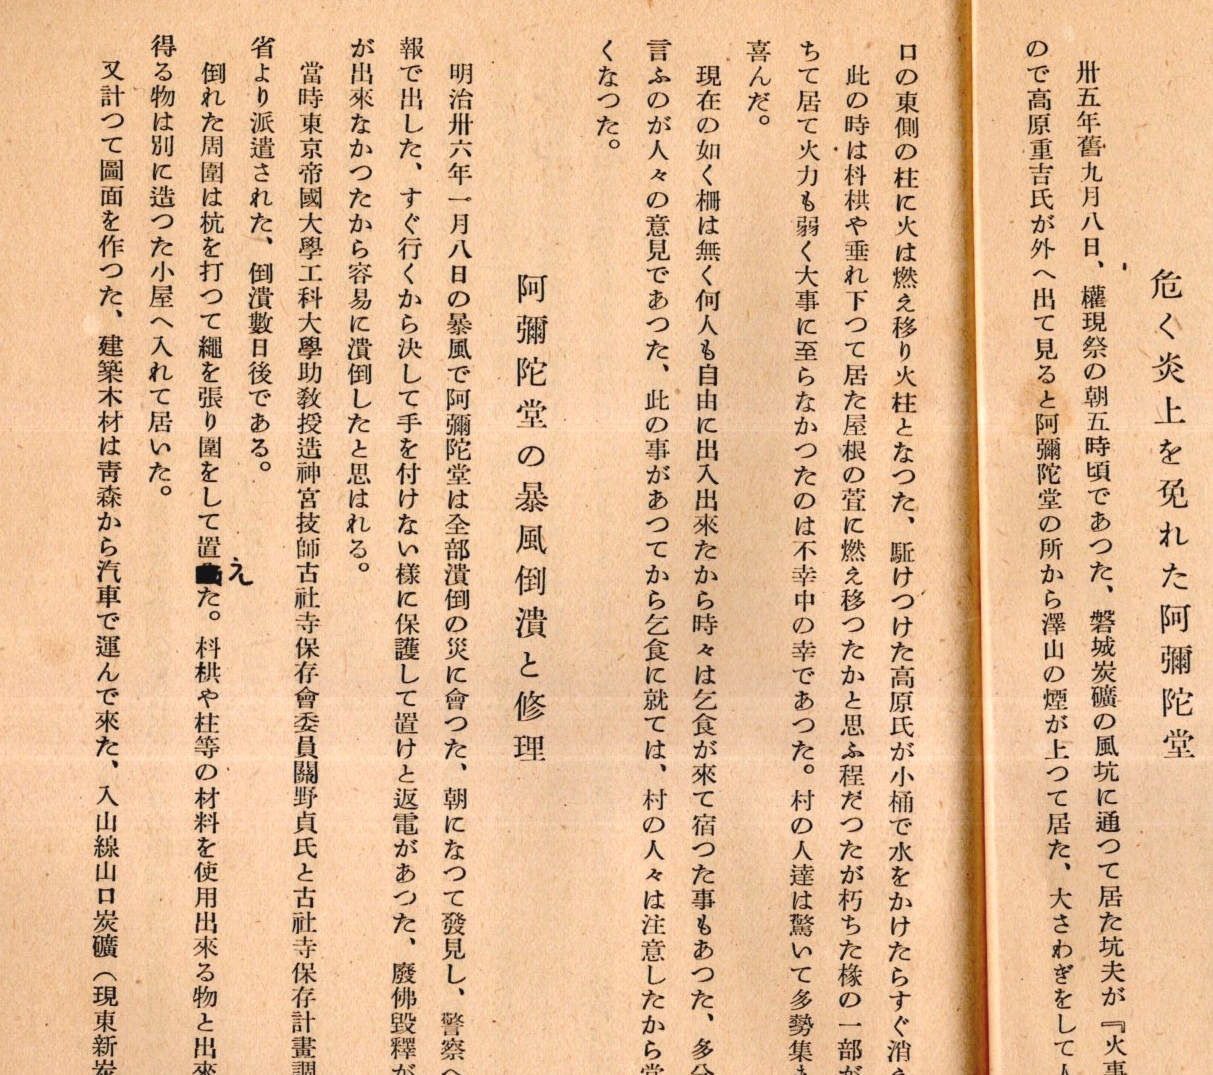 危く炎上を免れた阿彌陀堂
卅五年舊九月八日、權現祭の朝五時頃であつた、磐城炭礦の風坑に通つて居た坑夫が『火事
ので高原重吉氏が外へ出て見ると阿彌陀堂の所から澤山の煙が上つて居た、大さわぎをして人
口の東側の柱に火は燃え移り火柱となつた、駈けつけた高原氏が小桶で水をかけたらすぐ消え
此の時は枓栱や垂れ下つて居た屋根の萓に燃え移つたかと思ふ程だつたが朽ちた椽の一部が
ちて居て火力も弱く大事に至らなかつたのは不幸中の幸であつた。村の人達は驚いて多勢集ま
喜んだ。
現在の如く柵は無く何人も自由に出入出來たから時々は乞食が來て宿つた事もあつた、多分
言ふのが人々の意見であつた、此の事があつてから乞食に就ては、村の人々は注意したから堂
くなつた。
阿彌陀堂の暴風倒潰と修理
明治卅六年一月八日の暴風で阿彌陀堂は全部潰倒の災に會つた、朝になつて發見し、警察へ
報で出した、すぐ行くから決して手を付けない樣に保護して置けと返電があつた、廢佛毀釋が
が出來なかつたから容易に潰倒したと思はれる。
當時東京帝國大學工科大學助敎授造神宮技師古社寺保存會委員關野貞氏と古社寺保存計畫調
省より派遣された、倒潰數日後である。
倒れた周圍は杭を打つて繩を張り圍をして置えた。枓栱や柱等の材料を使用出來る物と出來
得る物は別に造つた小屋へ入れて居いた。
又計つて圖面を作つた、建築木材は靑森から汽車で運んで來た、入山線山口炭礦（現東新炭